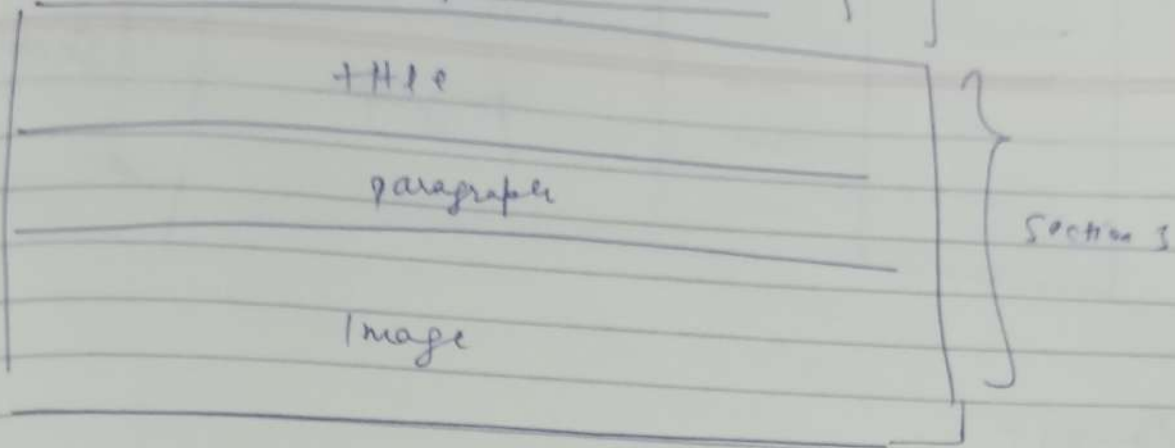 title
paragraph
Image
Section 3